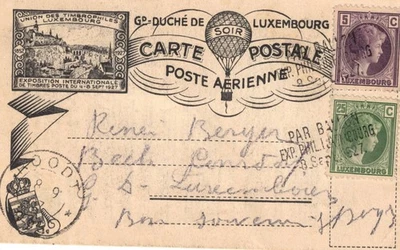 UNION DES TIMBROPHILES
LUXEMBOURG
EXPOSITION INTERNATIONALE
DE TIMBRES POSTE DU 4-8 SEPT 1927
Gᴰ-DUCHÉ DE LUXEMBOURG
SOIR
CARTE POSTALE
POSTE AÉRIENNE
5 C
LUXEMBOURG
25 C
LUXEMBOURG
PAR BALLON
EXP. PHIL. LUXEMBOURG
8 SEPT. 1927
René Berger
G. D. Luxembourg
Bon souvenir